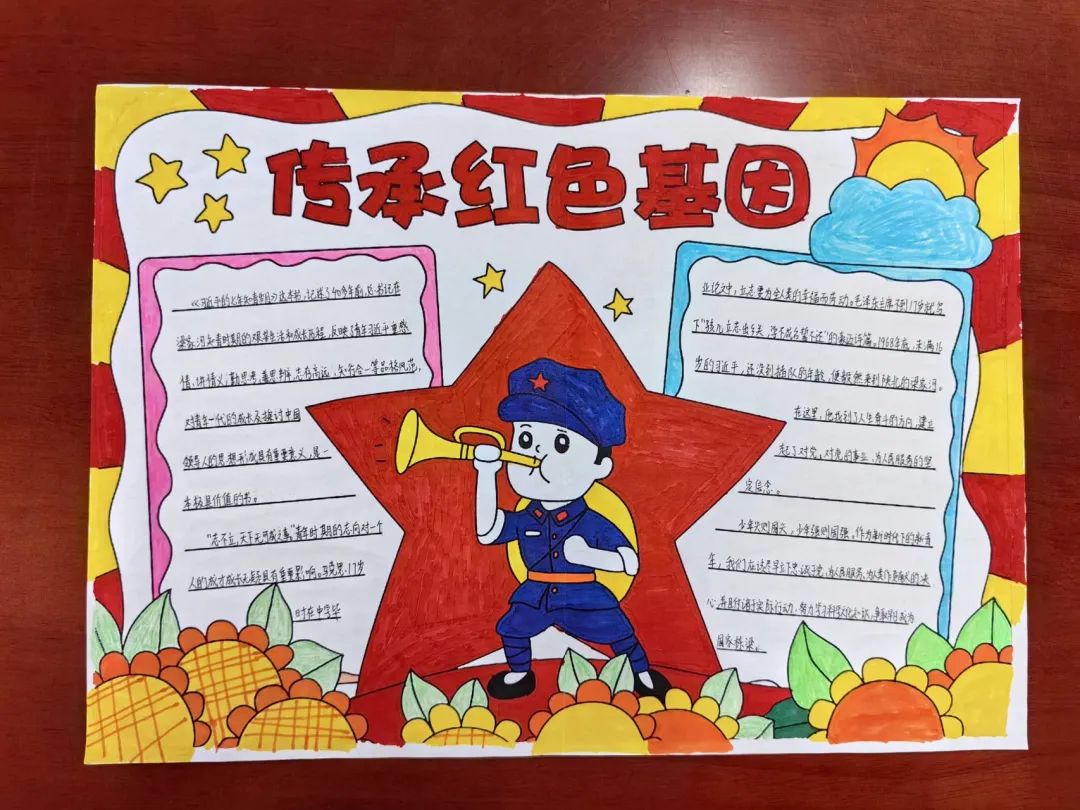 传承红色基因
《习近平的七年知青岁月》这本书,记述了40多年前,总书记在
梁家河知青时期的艰苦生活和成长历程,反映了青年习近平重感
情,讲情义,勤思考,善思辨,志存高远,知行合一等品格风范,
对青年一代的成长及探讨中国
领导人的思想形成具有重要意义,是一
本极具价值的书。
"志不立,天下无可成之事。"青年时期的志向对一个
人的成才成长无疑具有重要影响。马克思17岁
时在中学毕
业论文中,立志要为全人类的幸福而劳动。毛泽东主席不到17岁就写
下"孩儿立志出乡关,学不成名誓不还"的豪迈诗篇。1968年底,未满16
岁的习近平,还没到插队的年龄,便毅然来到陕北的梁家河。
在这里,他找到了人生奋斗的方向,建立
起了对党,对党的事业,为人民服务的坚
定信念。
少年兴则国兴,少年强则国强。作为新时代下的新青
年,我们应该尽早立下忠诚于党,为人民服务,为人类作贡献的决
心,并且付诸于实际行动,努力学习科学文化知识,争取早日成为
国家栋梁。